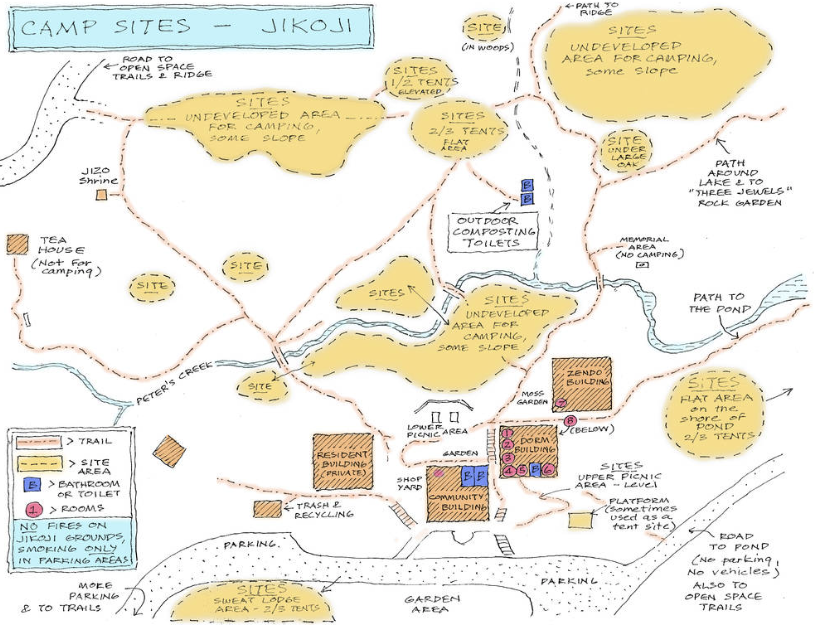 CAMP SITES - JIKOJI
ROAD TO
OPEN SPACE
TRAILS & RIDGE
SITES
UNDEVELOPED AREA
FOR CAMPING,
SOME SLOPE
SITES
1/2 TENTS
ELEVATED
SITE
(IN WOODS)
PATH TO
RIDGE
SITES
UNDEVELOPED
AREA FOR CAMPING,
some slope
SITES
2/3 TENTS
FLAT
AREA
SITE
UNDER
LARGE
OAK
PATH
AROUND
LAKE & TO
"THREE JEWELS"
ROCK GARDEN
JIZO
Shrine
B
B
OUTDOOR
COMPOSTING
TOILETS
TEA
HOUSE
(Not for
camping)
MEMORIAL
AREA
(NO CAMPING)
SITE
SITE
SITES
SITES
UNDEVELOPED
AREA FOR
CAMPING,
SOME SLOPE
PATH TO
THE POND
PETER'S CREEK
SITE
ZENDO
BUILDING
MOSS
GARDEN
7
SITES
FLAT AREA
on the
shore of
POND
2/3 TENTS
LOWER
PICNIC AREA
8
(BELOW)
GARDEN
1
2
3
4
5
B
6
DORM
BUILDING
RESIDENT
BUILDING
(PRIVATE)
SHOP
YARD
B
B
COMMUNITY
BUILDING
SITES
UPPER PICNIC
AREA - Level
PLATFORM
(sometimes
used as a
tent site)
> TRAIL
> SITE
AREA
B > BATHROOM
OR TOILET
1 > ROOMS
NO FIRES ON
JIKOJI GROUNDS,
SMOKING ONLY
IN PARKING AREAS
TRASH &
RECYCLING
PARKING
PARKING
ROAD
TO POND
(No parking,
No vehicles)
ALSO TO
OPEN SPACE
TRAILS
MORE
PARKING
& TO TRAILS
SITES
SWEAT LODGE
AREA - 2/3 TENTS
GARDEN
AREA